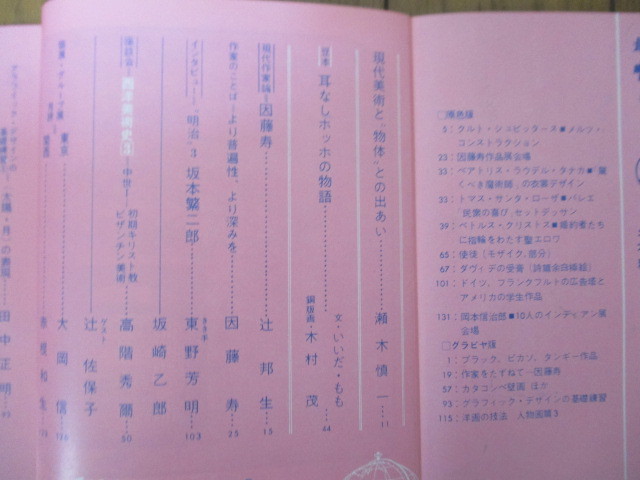 □原色版
5：クルト・シュビッタース■メルツ・
コンストラクション
23：因藤寿作品展会場
33：ベアトリス・ラウデル・タナカ■「驚
くべき魔術師」の衣裳デザイン
33：トマス・サンタ・ローザ■バレエ
「民衆の喜び」セットデッサン
39：ペトルス・クリストス■婚約者たち
に指輪をわたす聖エロワ
65：使徒〔モザイク，部分〕
67：ダヴィデの受膏〔詩篇金口〕
101：ドイツ，フランクフルトの広告塔と
アメリカの学生作品
131：岡本信治郎■10人のインディアン展
会場
□グラビヤ版
1：ブラック，ピカソ，タンギー作品
19：作家をたずねて―因藤寿
57：カタコンベ壁画 ほか
93：グラフィック・デザインの基礎練習
115：洋画の技法 人物画篇3
現代美術と“物体”との出あい………瀬木慎一…11
絵本 耳なしホッホの物語………文・いいだ・もも
銅版画・木村 茂…44
現代作家論―因藤寿………辻 邦生…15
作家のことば―より普遍性、より深みを………因藤 寿…25
インタビュー―“明治”3 坂本繁二郎………ききて 東野芳明…103
坂崎乙郎
座談会―西洋美術史3―中世―初期キリスト教
ビザンチン美術………高階秀爾…50
ゲスト 辻 佐保子
個展・グループ展 東京………大岡 信…
グラフィック・デザインの
基礎練習 太陽・月」の表現………田中正明…93